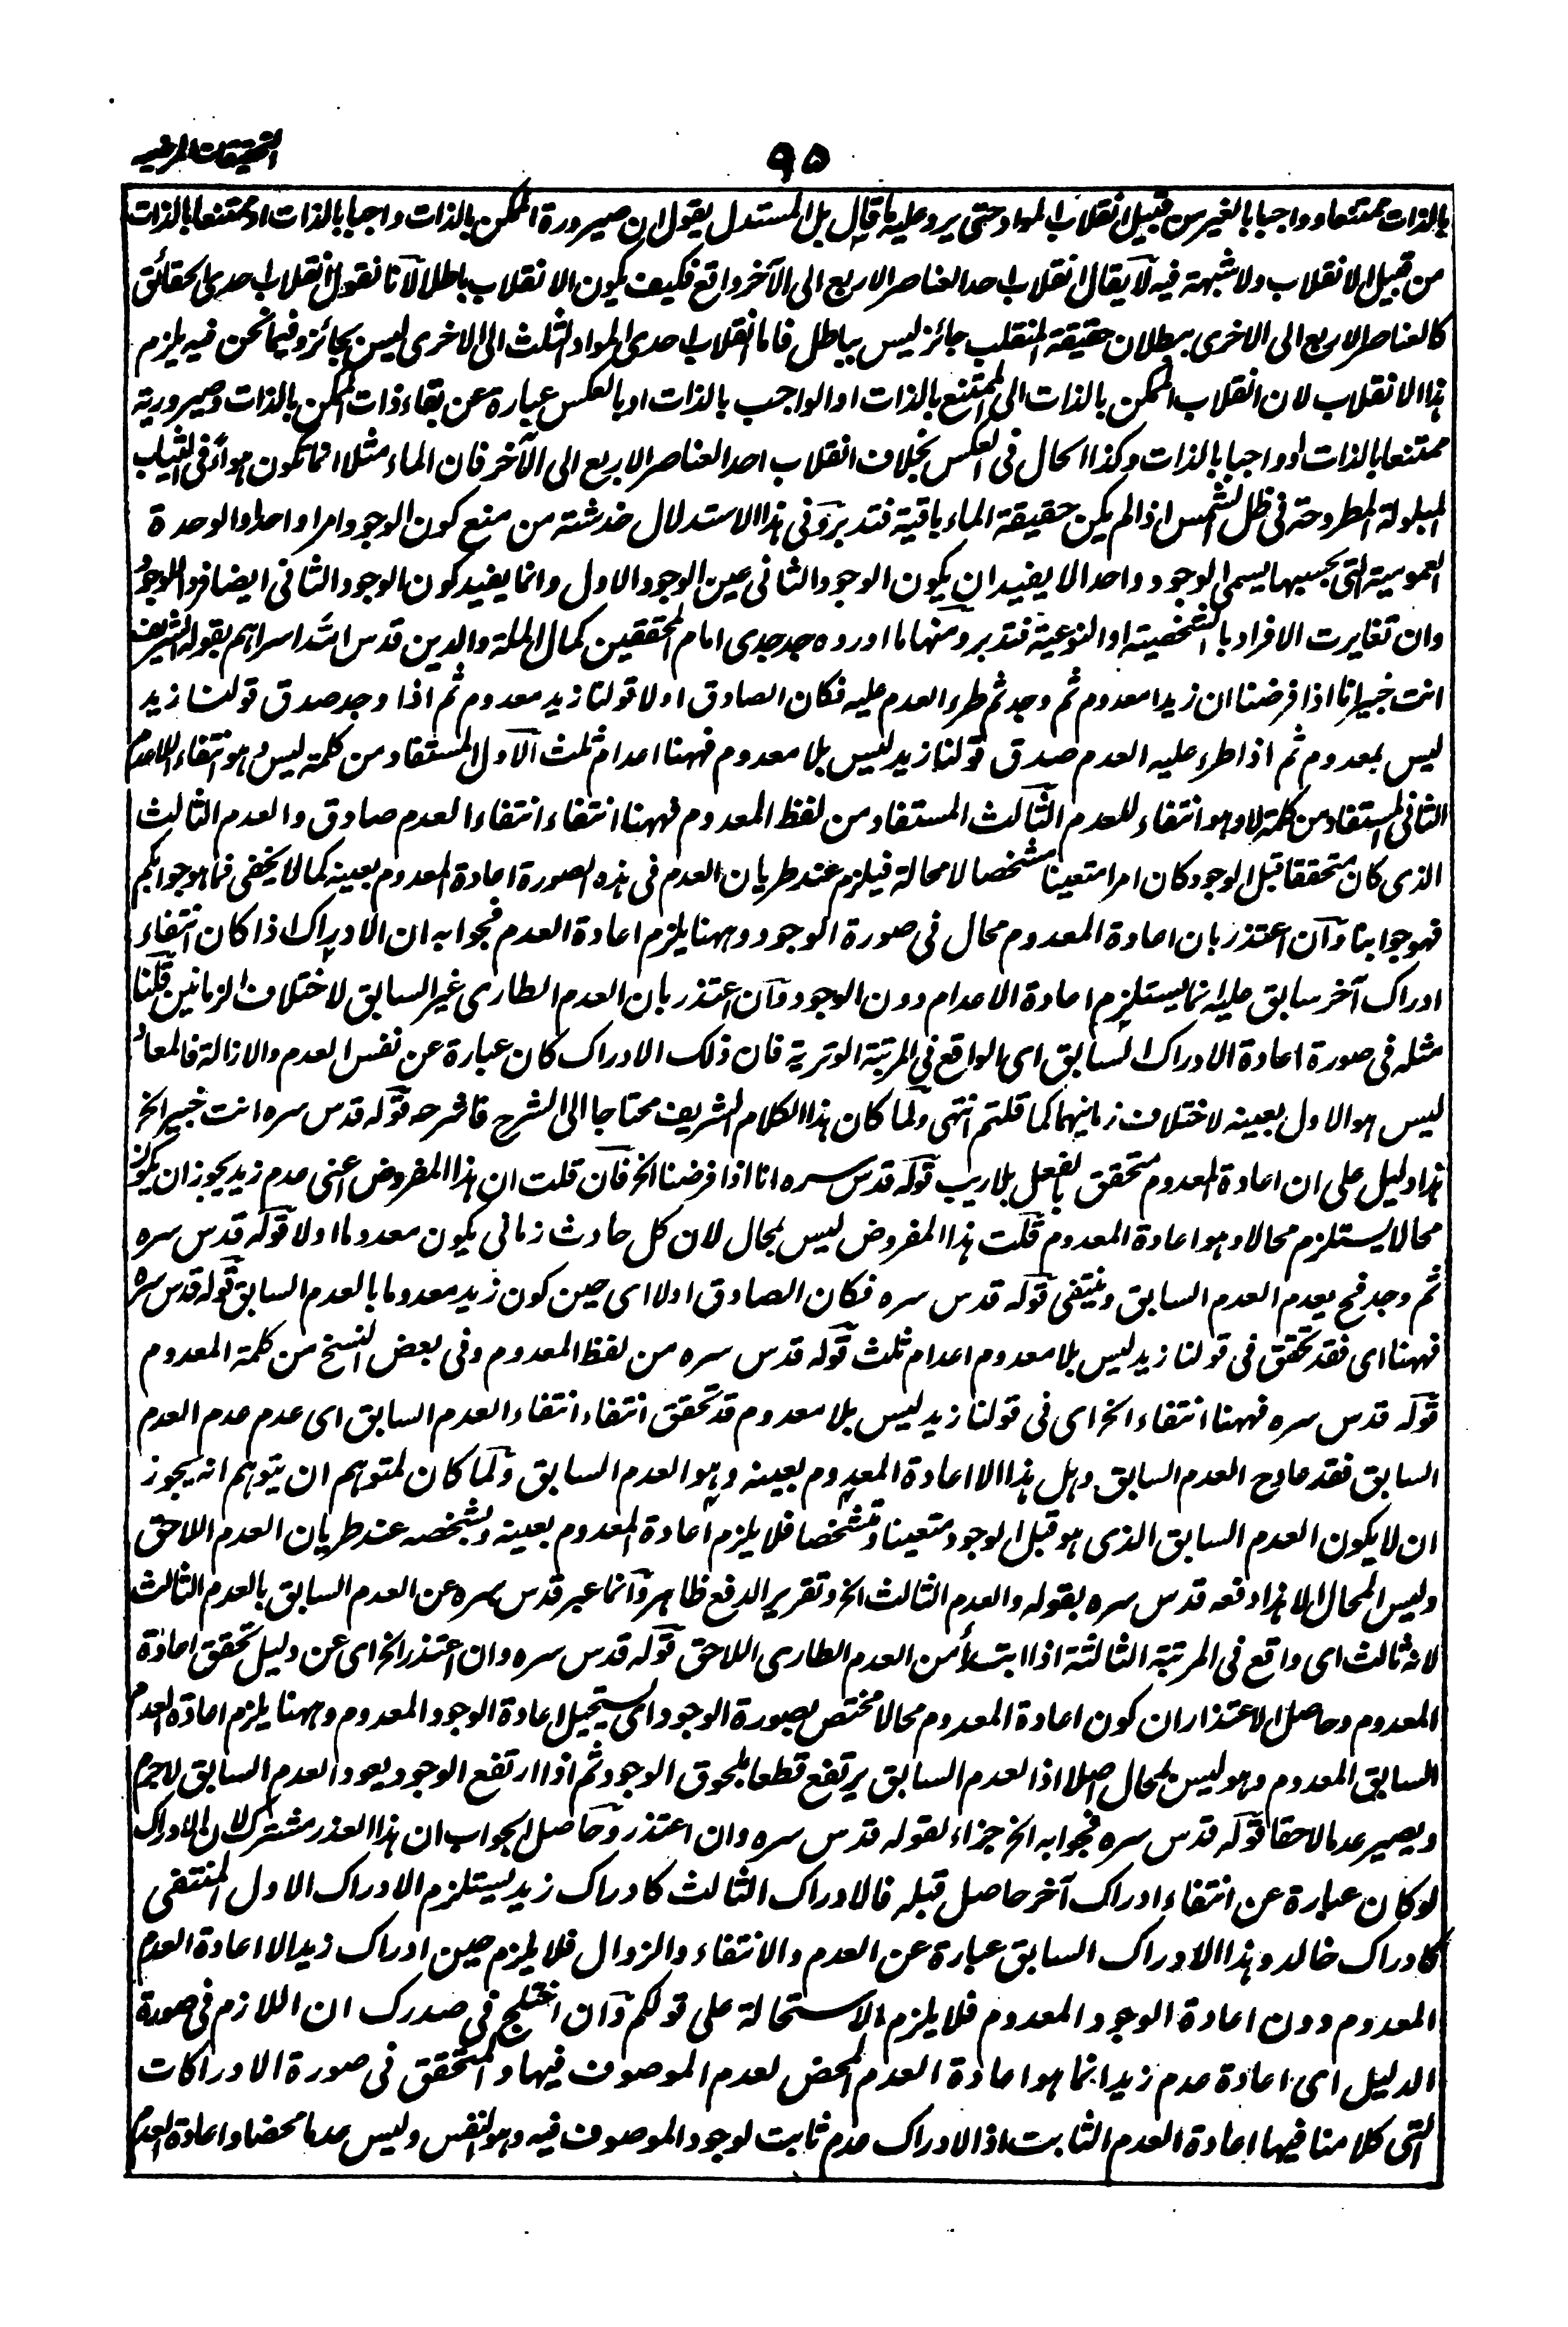 التحقيقات المرضيه
٩٥
بالذات ممتنعا وواجبا بالغير من قبيل انقلاب المواد حتى يرد عليه ما قال بل المستدل يقول ان صيرورة الممكن بالذات واجبا بالذات او ممتنعا بالذات
من قبيل الانقلاب ولا شبهته فيه لا يقال انقلاب احد العناصر الاربع الى الآخر واقع فكيف يكون الانقلاب باطلا لانا نقول انقلاب احدى الحقائق
كالعناصر الاربع الى الاخرى ببطلان حقيقة المنقلب جائز ليس بباطل فاما انقلاب احدى المواد الثلث الى الاخرى ليس بجائز وفيما نحن فيه يلزم
هذا الانقلاب لان انقلاب الممكن بالذات الى الممتنع بالذات او الواجب بالذات او بالعكس عبارة عن بقاء ذات الممكن بالذات وصيروريته
ممتنعا بالذات او واجبا بالذات وكذا الحال فى العكس بخلاف انقلاب احد العناصر الاربع الى الآخر فان الماء مثلا انما تكون هواءً فى الثياب
المبلولة المطروحة فى ظل الشمس اذا لم يكن حقيقة الماء باقية فتدبر وفى هذا الاستدلال خدشته من منع كون الوجود امرا واحدا والوحدة
العمومية التى بحسبها يسمى الوجود واحدا لا يفيد ان يكون الوجود الثانى عين الوجود الاول وانما يفيد كون الوجود الثانى ايضا فردا للوجود
وان تغايرت الافراد بالتشخصية او النوعية فتدبر ومنها ما اورده جد جدى امام المحققين كمال الملة والدين قدس الله اسرارهم بقوله الشريف
انت خبير بانا اذا فرضنا ان زيدا معدوم ثم وجد ثم طرء العدم عليه فكان الصادق اولا قولنا زيد معدوم ثم اذا وجد صدق قولنا زيد
ليس بمعدوم ثم اذا طرء عليه العدم صدق قولنا زيد ليس بلا معدوم فههنا اعدام ثلث الاول المستفاد من كلمة ليس وهو انتفاء اللاعدم
الثانى المستفاد من كلمة لا وهو انتفاء للعدم الثالث المستفاد من لفظ المعدوم فههنا انتفاء انتفاء العدم صادق والعدم الثالث
الذى كان متحققا قبل الوجود كان امرا متعينا مشخصا لا محالة فيلزم عند طريان العدم فى هذه الصورة اعادة المعدوم بعينه كما لا يخفى فما هو جوابكم
فهو جوابنا وان اعتذر بان اعادة المعدوم محال فى صورة الوجود وههنا يلزم اعادة العدم فجوابه ان الادراك اذا كان انتفاء
ادراك آخر سابق عليه انما يستلزم اعادة الاعدام دون الوجود وان اعتذر بان العدم الطارى غير السابق لاختلاف الزمانين قلنا
مثله فى صورة اعادة الادراك السابق اى الواقع فى المرتبة الوترية فان ذلك الادراك كان عبارة عن نفس العدم والازالة فالمعاد
ليس هو الاول بعينه لاختلاف زمانيهما كما قلتم انتهى ولما كان هذا الكلام الشريف محتاجا الى الشرح فاشرحه قوله قدس سره انت خبير الخ
هذا دليل على ان اعادة المعدوم متحقق بالفعل بلا ريب قوله قدس سره انا اذا فرضنا الخ فان قلت ان هذا المفروض اعنى عدم زيد يجوز ان يكون
محالا يستلزم محالا وهو اعادة المعدوم قلت هذا المفروض ليس بمحال لان كل حادث زمانى يكون معدوما اولا قوله قدس سره
ثم وجد فح يعدم العدم السابق وينتفى قوله قدس سره فكان الصادق اولا اى حين كون زيد معدوما بالعدم السابق قوله قدس سره
فههنا اى فقد تحقق فى قولنا زيد ليس بلا معدوم اعدام ثلث قوله قدس سره من لفظ المعدوم وفى بعض النسخ من كلمة المعدوم
قوله قدس سره فههنا انتفاء الخ اى فى قولنا زيد ليس بلا معدوم قد تحقق انتفاء انتفاء العدم السابق اى عدم عدم العدم
السابق فقد عاد ح العدم السابق وهل هذا الا اعادة المعدوم بعينه وهو العدم السابق ولما كان لمتوهم ان يتوهم انه يجوز
ان لا يكون العدم السابق الذى هو قبل الوجود متعينا ومتشخصا فلا يلزم اعادة المعدوم بعينه وبشخصه عند طريان العدم اللاحق
وليس المحال الا هذا دفعه قدس سره بقوله والعدم الثالث الخ وتقرير الدفع ظاهر وانما عبر قدس سره عن العدم السابق بالعدم الثالث
لانه ثالث اى واقع فى المرتبة الثالثة اذا ابتدأ من العدم الطارى اللاحق قوله قدس سره وان اعتذر الخ اى عن دليل تحقق اعادة
المعدوم وحاصل الاعتذار ان كون اعادة المعدوم محالا مختص بصورة الوجود اى يستحيل اعادة الوجود المعدوم وههنا يلزم اعادة العدم
السابق المعدوم وهو ليس بمحال اصلا اذا لعدم السابق يرتفع قطعا بلحوق الوجود ثم اذا ارتفع الوجود يعود العدم السابق لاجرم
ويصير عدما لاحقا قوله قدس سره فجوابه الخ جزاء لقوله قدس سره وان اعتذر وحاصل الجواب ان هذا العذر مشترك لان الادراك
لو كان عبارة عن انتفاء ادراك آخر حاصل قبله فالادراك الثالث كادراك زيد يستلزم الادراك الاول المنتفى
كادراك خالد وهذا الادراك السابق عبارة عن العدم والانتفاء والزوال فلا يلزم حين ادراك زيد الا اعادة العدم
المعدوم دون اعادة الوجود المعدوم فلا يلزم الاستحالة على قولكم وان اختلج فى صدرك ان اللازم فى صورة
الدليل اى اعادة عدم زيد انما هو اعادة العدم المحض لعدم الموصوف فيها والمتحقق فى صورة الادراكات
التى كلامنا فيها اعادة العدم الثابت اذ الادراك عدم ثابت لوجود الموصوف فيه وهو النفس وليس عدما محضا واعادة العدم